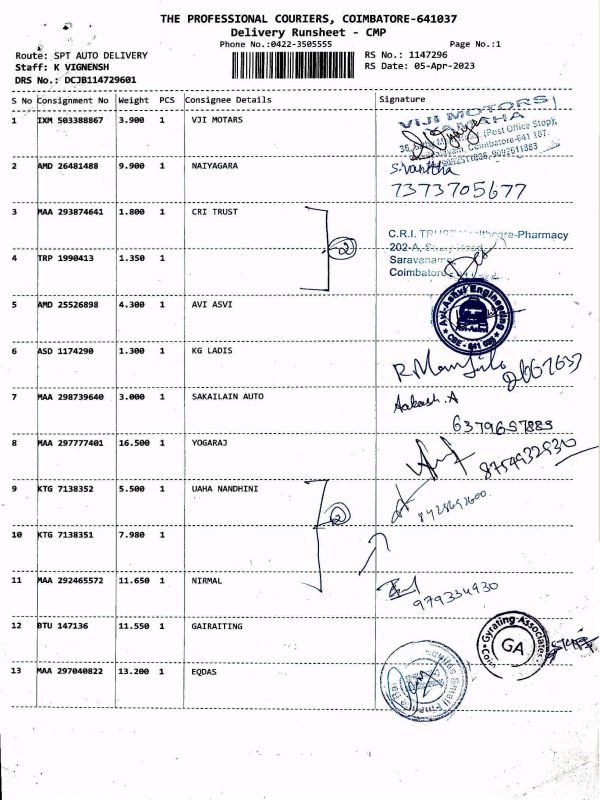 THE PROFESSIONAL COURIERS, COIMBATORE-641037
Delivery Runsheet - CMP
Phone No.:0422-3505555 Page No.:1
Route: SPT AUTO DELIVERY RS No.: 1147296
Staff: K VIGNENSH RS Date: 05-Apr-2023
DRS No.: DCJB114729601
S No Consignment No Weight PCS Consignee Details Signature
1 IXM 503388867 3.900 1 VJI MOTARS
VIJI MOTORS
(Post Office Stop),
Coimbatore-641 107.
2 AMD 26481488 9.900 1 NAIYAGARA S.Vanitha
7373705677
3 MAA 293874641 1.800 1 CRI TRUST
2
C.R.I. TRUST Healthcare-Pharmacy
4 TRP 1990413 1.350 1
202-A,
Coimbatore
5 AMD 25526898 4.300 1 AVI ASVI
Avi-Ashvi Engineering
Avi-Ashvi
6 ASD 1174290 1.300 1 KG LADIS
7 MAA 298739640 3.000 1 SAKAILAIN AUTO Aakash.A
8 MAA 297777401 16.500 1 YOGARAJ
9 KTG 7138352 5.500 1 UAHA NANDHINI
2
10 KTG 7138351 7.980 1
11 MAA 292465572 11.650 1 NIRMAL
979334930
12 BTU 147136 11.550 1 GAIRAITING
Gyrating Associates
GA
13 MAA 297040822 13.200 1 EQDAS